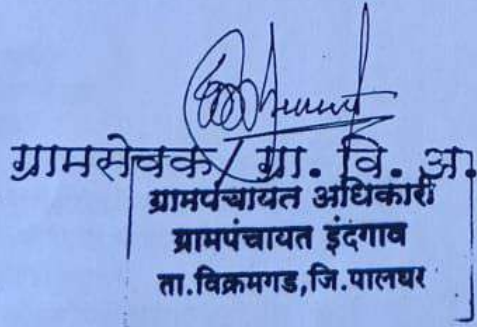 ग्रामसेवक / ग्रा. वि. अ.
ग्रामपंचायत अधिकारी
ग्रामपंचायत इंदगाव
ता.विक्रमगड,जि.पालघर